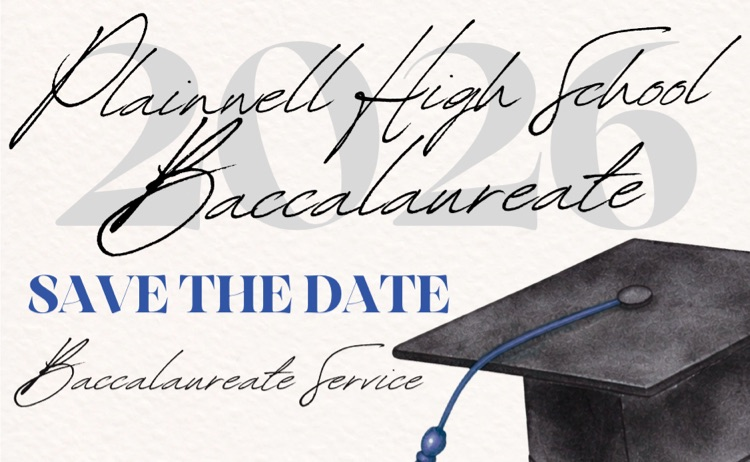 2026
Plainwell High School
Baccalaureate
SAVE THE DATE
Baccalaureate Service